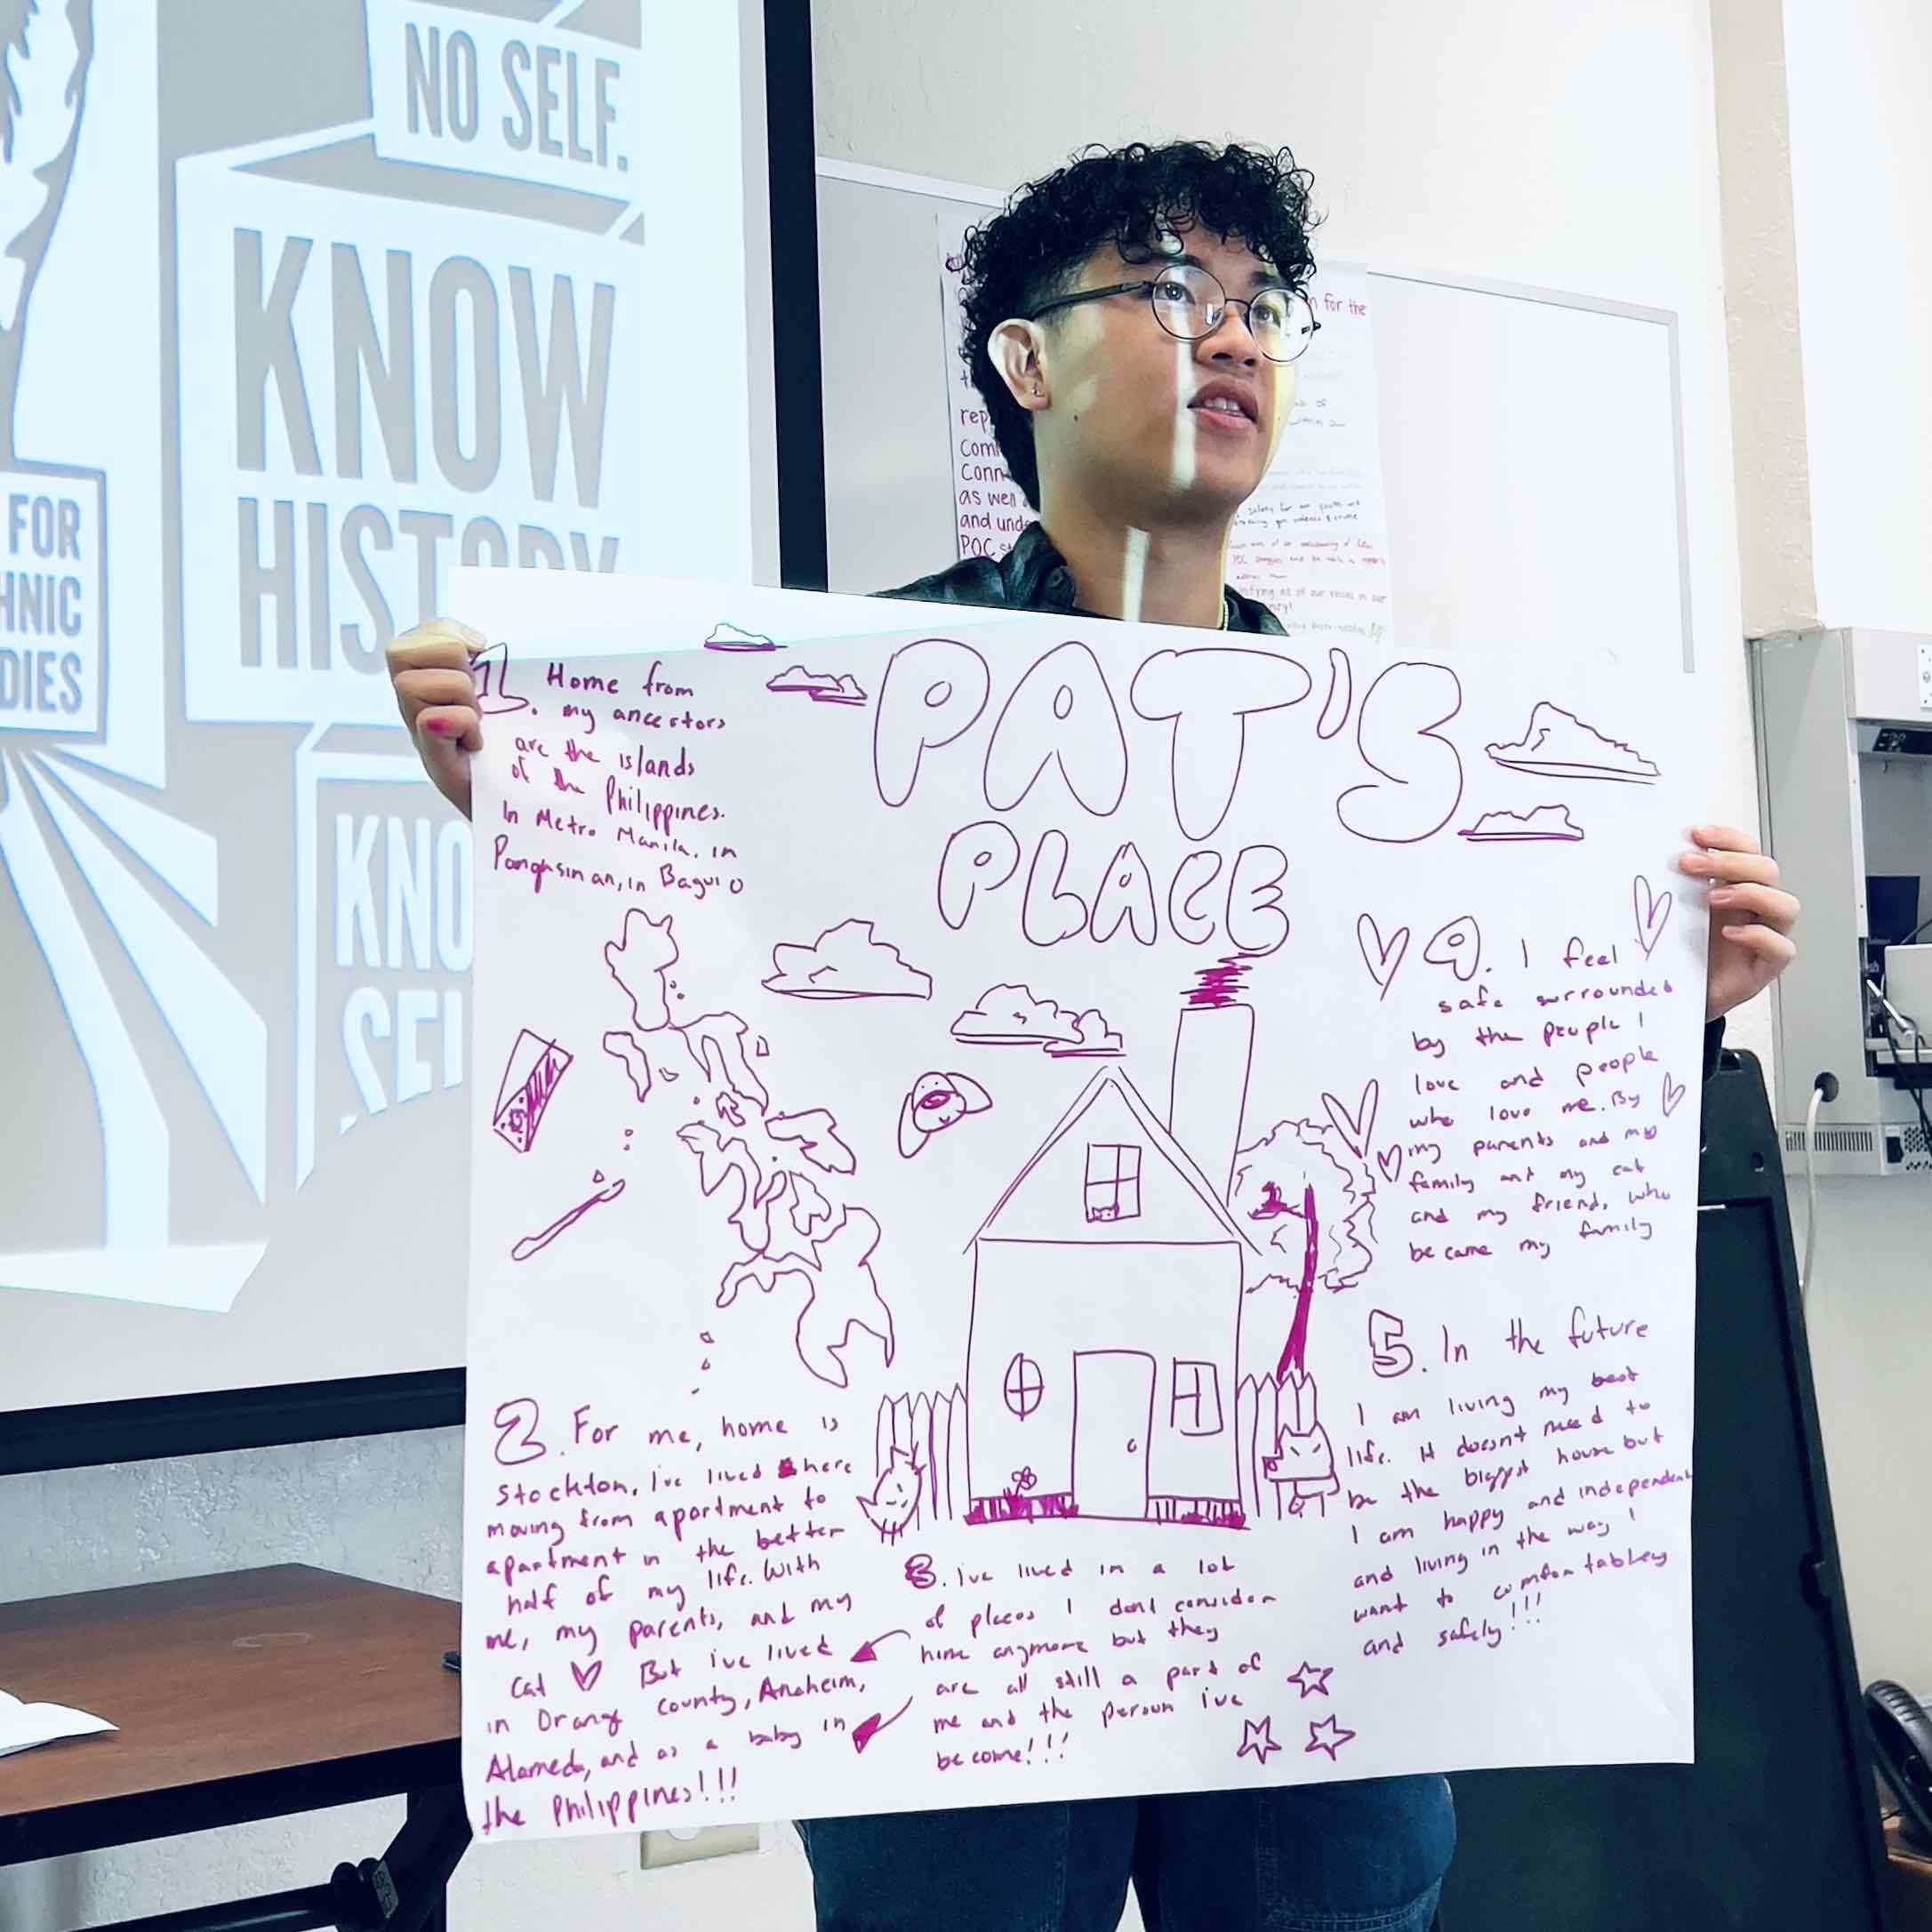 NO SELF.
KNOW
HISTORY
FOR
HNIC
DIES
KNO
SEL
for the
rep
Com
Conn
as well
and unde
POC st
PAT'S
PLACE
1. Home from
my ancestors
are the islands
of the Philippines.
In Metro Manila, in
Pangasinan, in Baguio
2. For me, home is
Stockton. I've lived here
moving from apartment to
apartment in the better
half of my life. With
me, my parents, and my
cat ♡ But i've lived
in Orange County, Anaheim,
Alameda, and as a baby in
the Philippines!!!
3. I've lived in a lot
of places I dont consider
home anymore but they
are all still a part of
me and the person i've
become!!!
4. I feel
safe surrounded
by the people I
love and people
who love me. By
my parents and my
family and my cat
and my friend, who
became my family
5. In the future
I am living my best
life. It doesnt need to
be the biggest house but
I am happy and independent
and living in the way I
want to comfortabley
and safely!!!